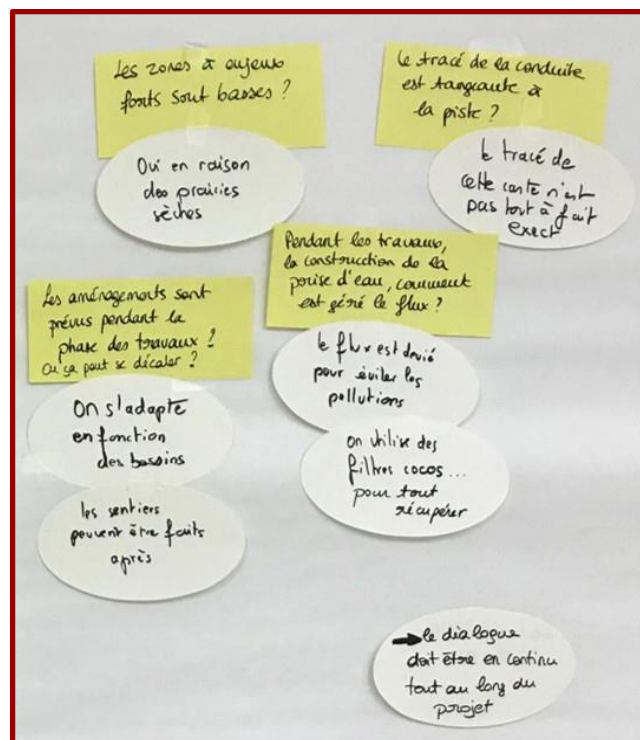 Les zones à enjeux
forts sont basses ?
Oui en raison
des prairies
sèches
le tracé de la conduite
est tangeante à
la piste ?
le tracé de
cette carte n'est
pas tout à fait
exact
Pendant les travaux,
la construction de la
prise d'eau, comment
est géré le flux ?
le flux est dévié
pour éviter les
pollutions
on utilise des
filtres cocos...
pour tout
récupérer
Les aménagements sont
prévus pendant la
phase des travaux ?
Ou ça peut se décaler ?
On s'adapte
en fonction
des besoins
les sentiers
peuvent être faits
après
➡ le dialogue
doit être en continu
tout au long du
projet